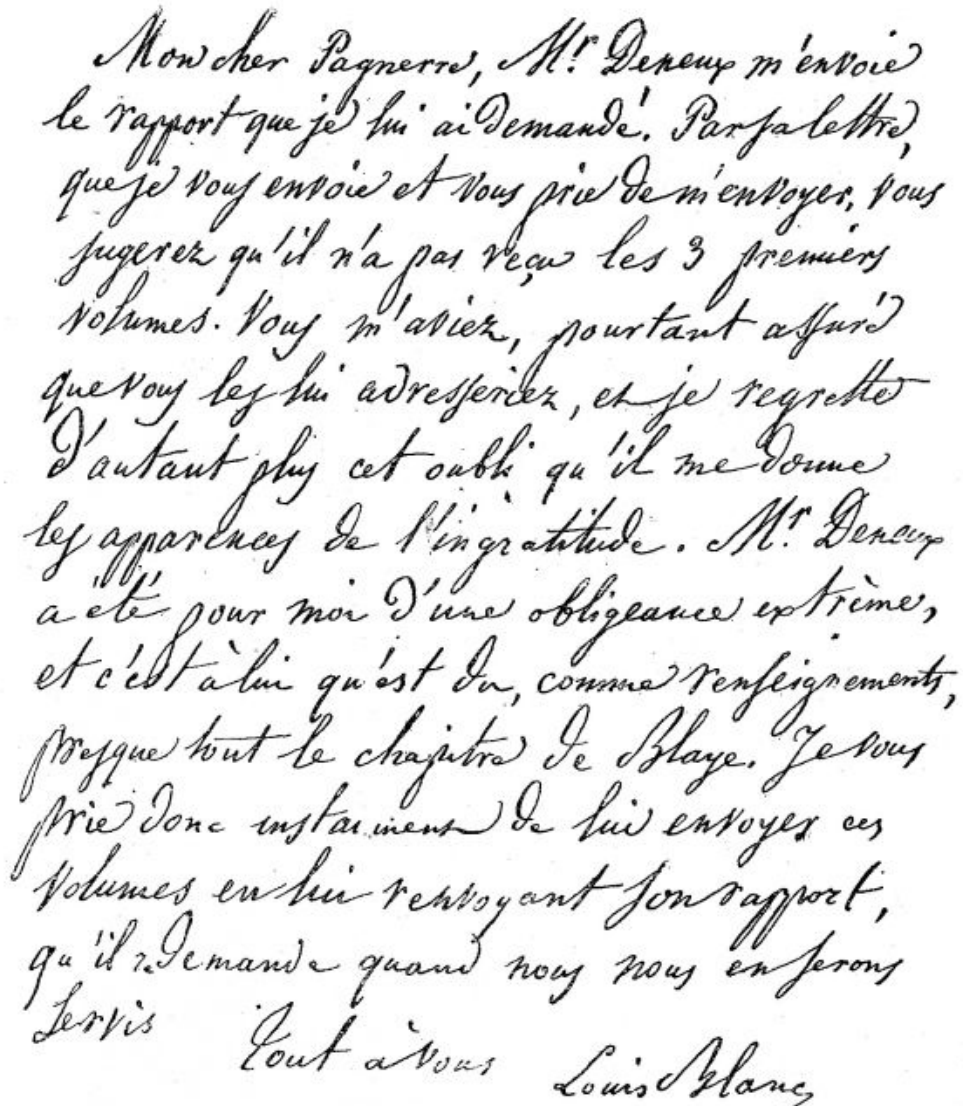 Mon cher Pagnerre, Mr. Deneux m'envoie
le rapport que je lui ai demandé. Par sa lettre,
que je vous envoie et vous prie de m'envoyer, vous
jugerez qu'il n'a pas reçu les 3 premiers
volumes. Vous m'aviez, pourtant assuré
que vous les lui adresseriez, et je regrette
d'autant plus cet oubli qu'il me donne
les apparences de l'ingratitude. Mr. Deneux
a été pour moi d'une obligeance extrême,
et c'est à lui qu'est du, comme renseignements,
presque tout le chapitre de Blaye. Je vous
prie donc instamment de lui envoyer ces
volumes en lui renvoyant son rapport,
qu'il redemande quand nous nous en serons
servis
Tout à vous
Louis Blanc